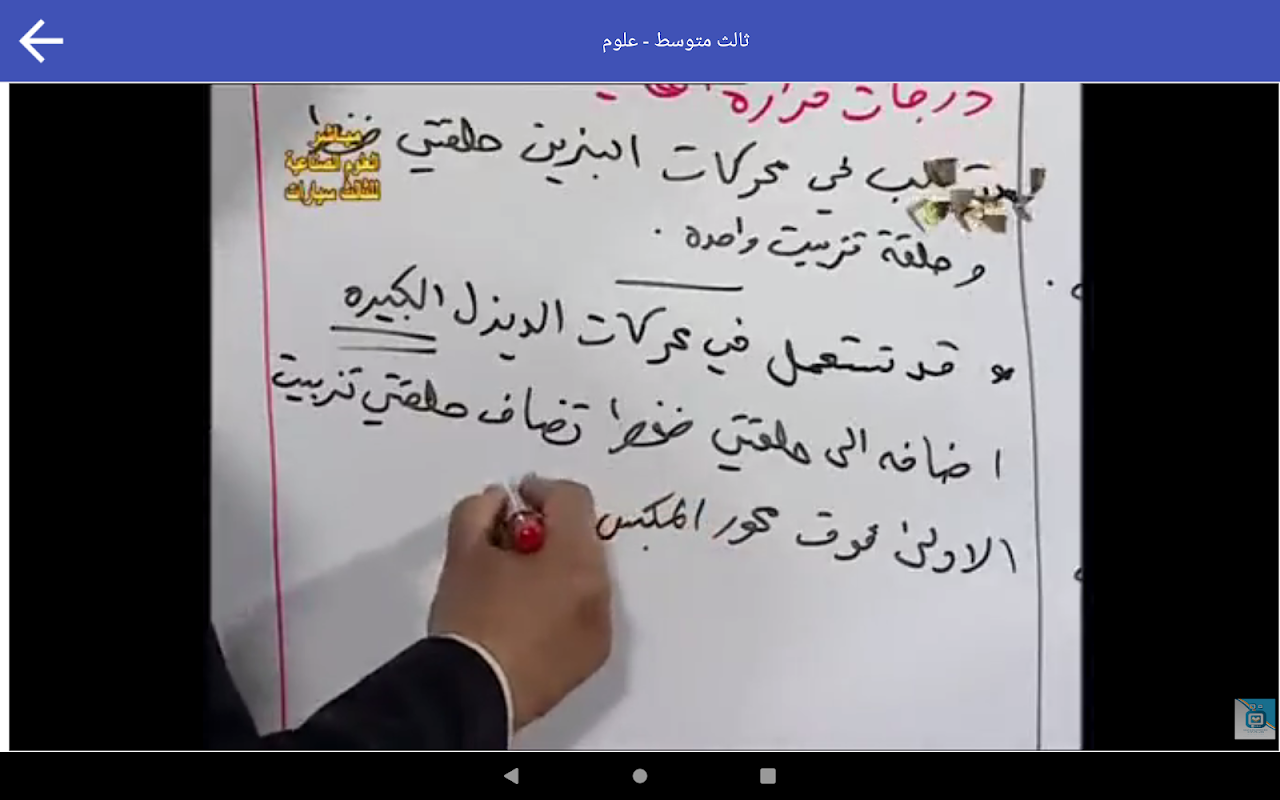 ثالث متوسط - علوم
درجات حرارة
في محركات البنزين حلقتي ضغط
مباشر
العلوم الصناعية
للثالث سيارات
و حلقة تزييت واحده .
* قد تستعمل في محركات الديزل الكبيره
اضافه الى حلقتي ضغط تضاف حلقتي تزييت
الاولى فوق محور المكبس